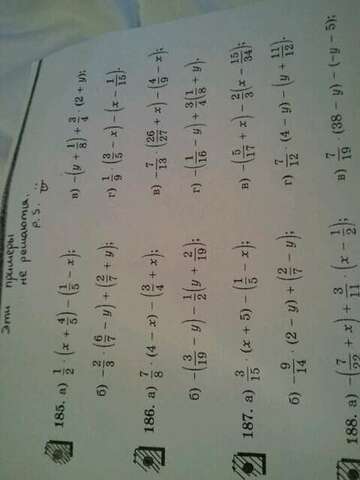 Эти примеры
не решаются.
P.S. ...
185. а) 1/2 · (x + 4/5) − (1/5 − x); в) −(y + 1/8) + 3/4 · (2 + y);
б) −2/3 · (6/7 − y) + (2/7 + y); г) 1/9 · (3/5 − x) − (x − 1/15).
186. а) 7/8 · (4 − x) − (3/4 + x); в) −7/13 · (26/27 + x) − (4/9 − x);
б) −(3/19 − y) − 1/2(y + 2/19); г) −(1/16 − y) + 3/4(1/8 + y).
187. а) 3/15 · (x + 5) − (1/5 − x); в) −(5/17 + x) − 2/3(x − 15/34);
б) −9/14 · (2 − y) + (2/7 − y); г) 7/12 · (4 − y) − (y + 11/12).
188. а) −(7/22 + x) + 3/11 · (x − 1/2); в) 7/19 · (38 − y) − (−y − 5);